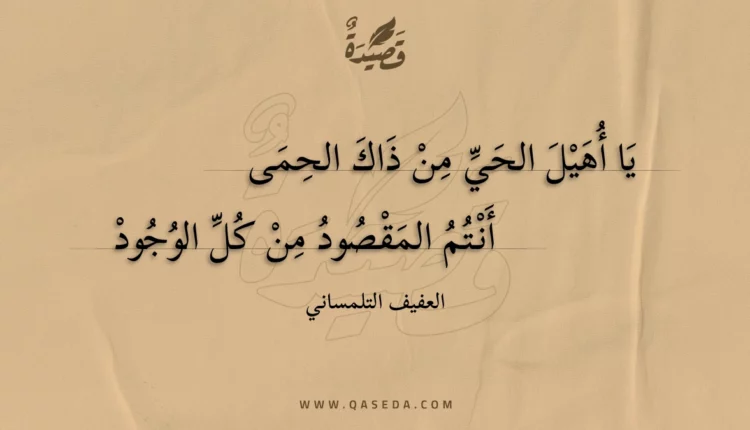 قَصِيْدَةٌ
يَا أُهَيْلَ الحَيِّ مِنْ ذَاكَ الحِمَى
أَنْتُمُ المَقْصُودُ مِنْ كُلِّ الوُجُودْ
العفيف التلمساني
WWW.QASEDA.COM